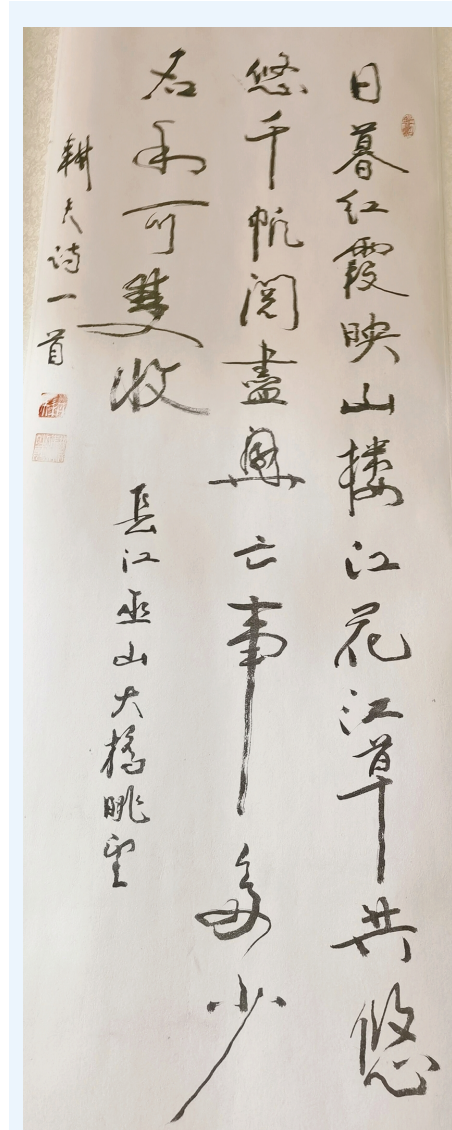 日暮红霞映山楼江花江草共悠
悠千帆阅盡興亡事多少
名利可雙收
長江巫山大橋眺望
耕夫诗一首